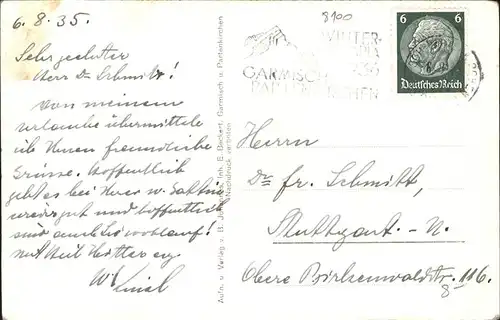 6.8.35.
8100
Sehr geehrter
Herr Dr. Schmitt!
Von meinem
Urlaube übermittele
ich Ihnen freundliche
Grüsse. Hoffentlich
geht es bei Ihrer w. Gattin
gut und hoffentlich
sind auch Sie wohlauf!
mit Heil Hitler
WINTER
GARMISCH
PARTENKIRCHEN
6 6
Deutsches Reich
Aufn. u. Verlag v. B. Inh. E. Beckert, Garmisch u. Partenkirchen
Nachdruck verboten
Herrn
Dr. Fr. Schmitt,
Stuttgart.-N.
Obere Birkenwaldstr. 116.